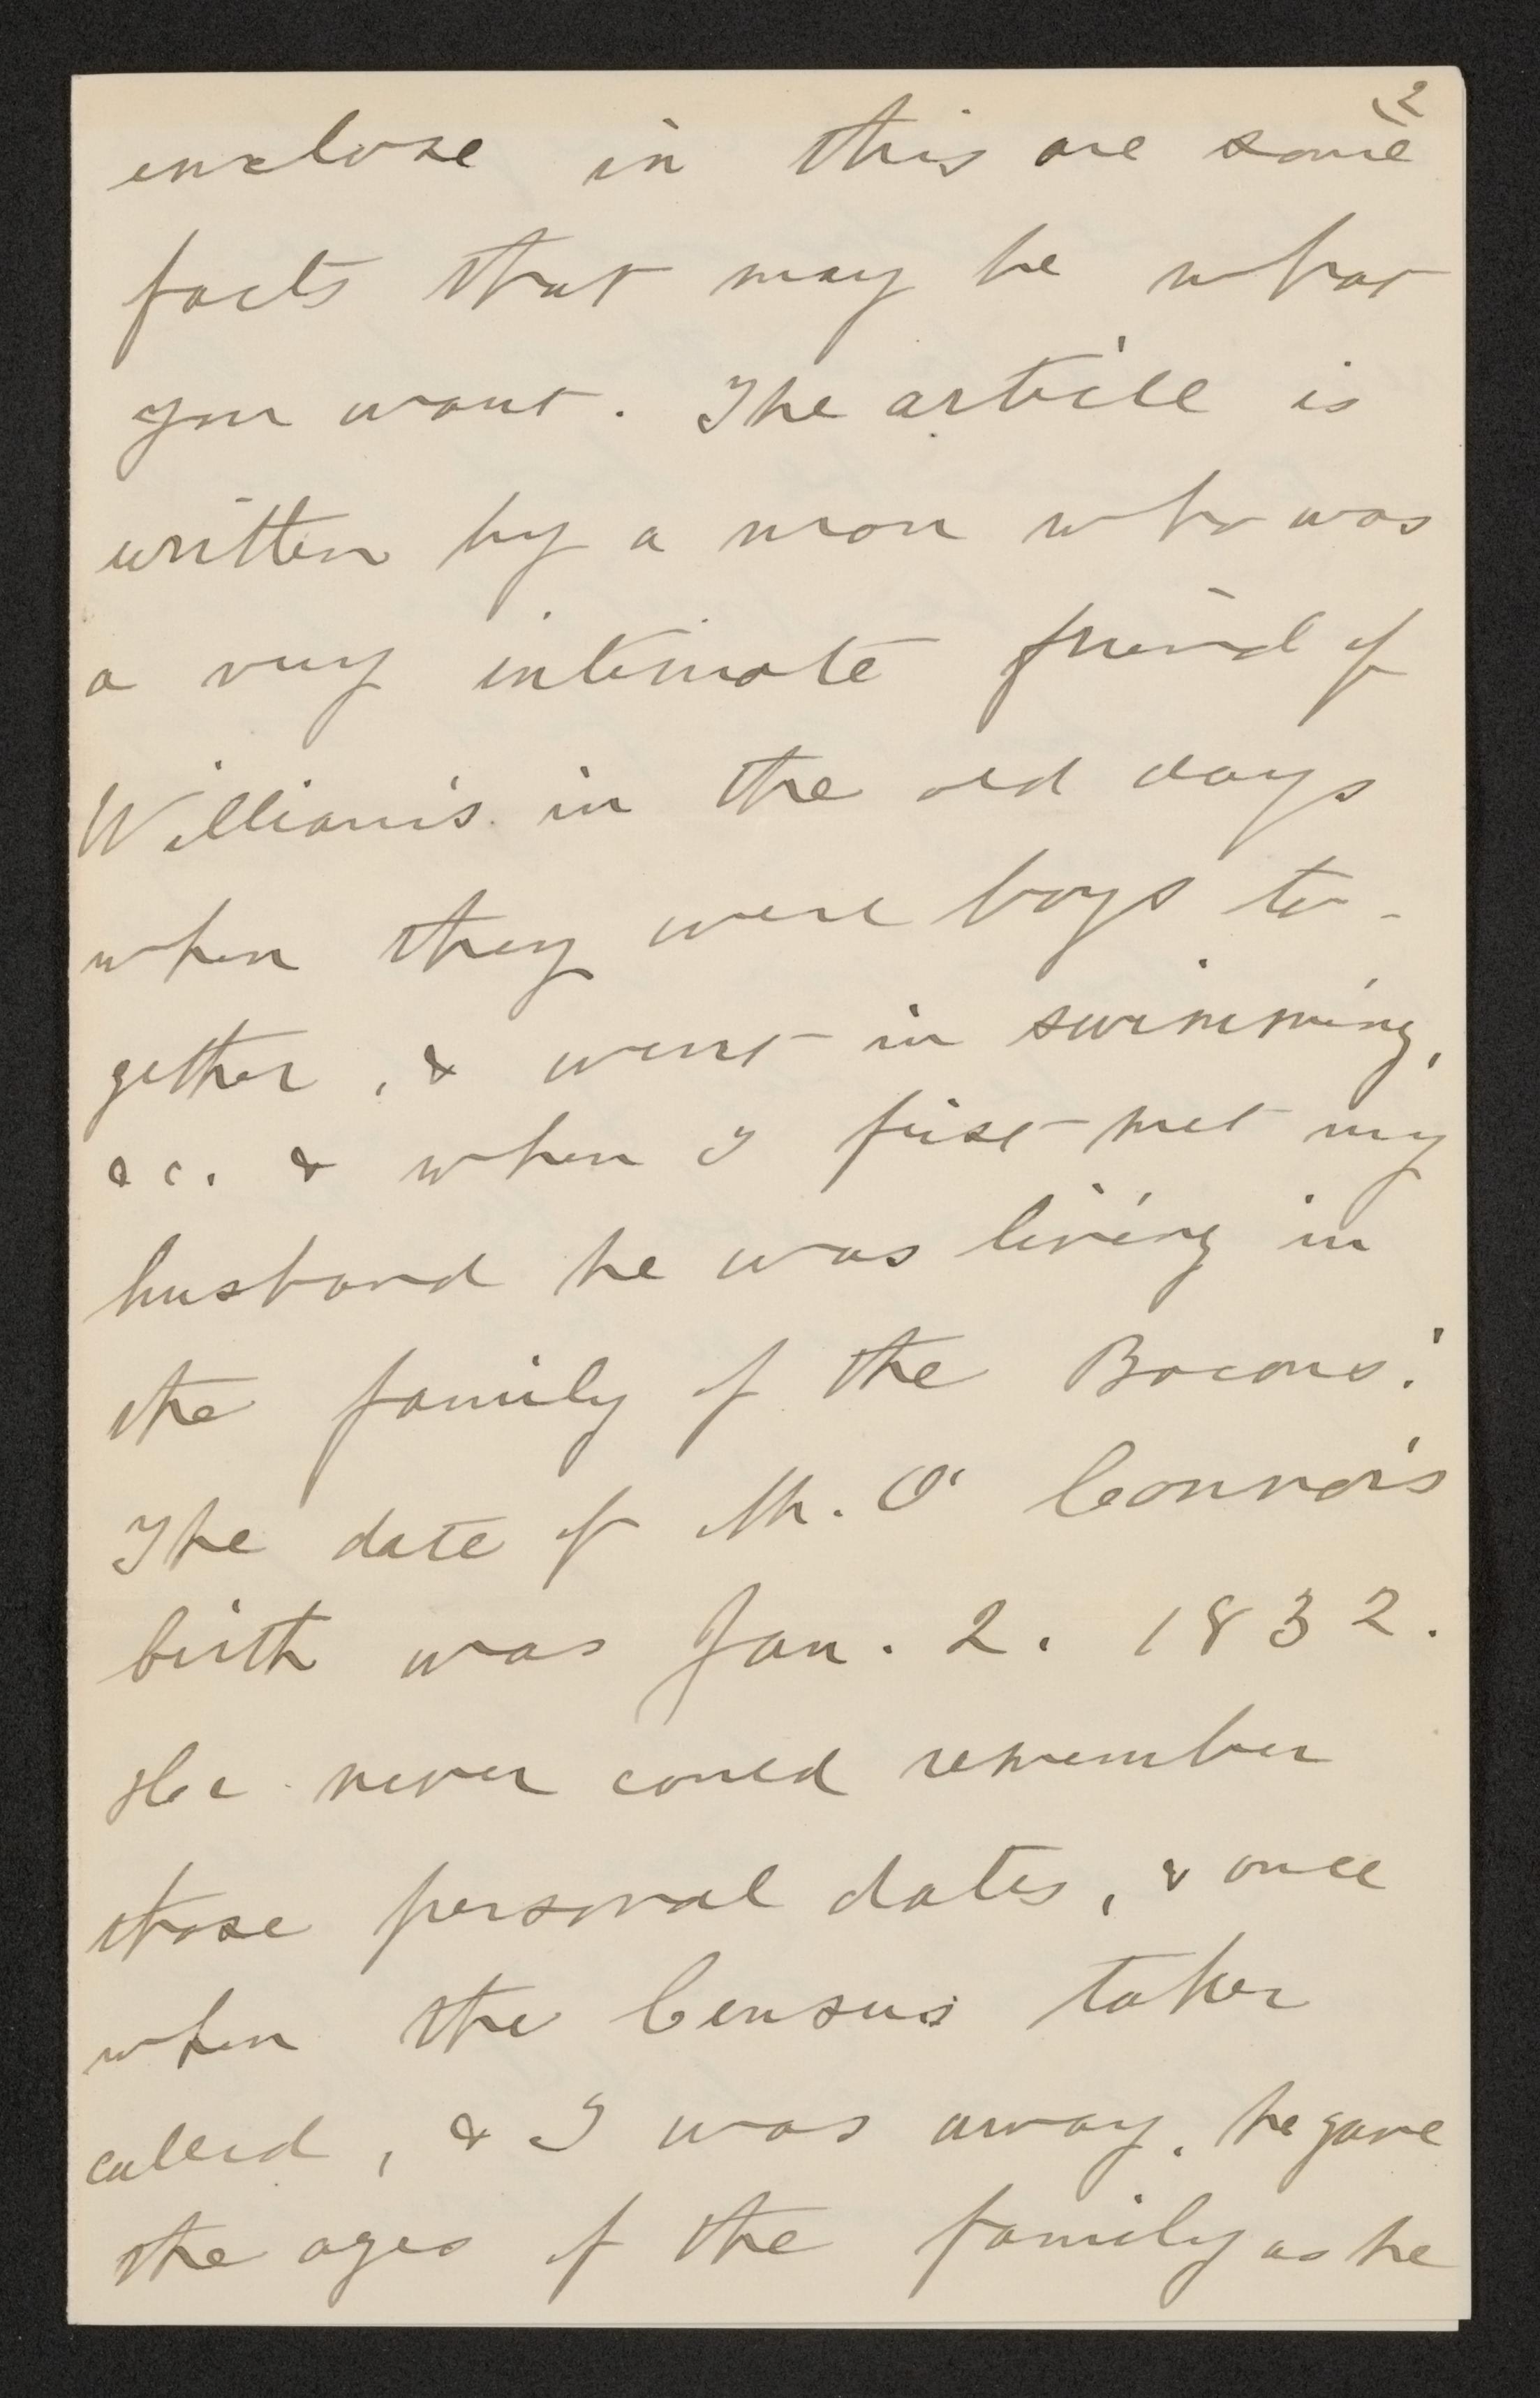 2
enclose in this are some
facts that may be what
you want. The article is
written by a man who was
a very intimate friend of
William's in the old days
when they were boys to-
gether, & went in swimming,
&c. & when I first met my
husband he was living in
the family of the Bacons'.
The date of Mr. O'Connor's
birth was Jan. 2. 1832.
He never could remember
those personal dates, & once
when the Census taker
called, & I was away, he gave
the ages of the family as he